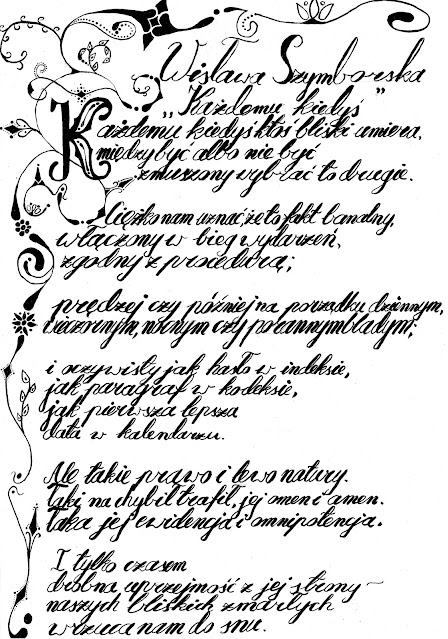 Wisława Szymborska
„Każdemu kiedyś”
Każdemu kiedyś ktoś bliski umiera,
między być albo nie być
zmuszony wybrać to drugie.
Ciężko nam uznać, że to fakt banalny,
włączony w bieg wydarzeń,
zgodny z procedurą;
prędzej czy później na porządku dziennym,
wieczornym, nocnym czy porannym bladym;
i oczywisty jak hasło w indeksie,
jak paragraf w kodeksie,
jak pierwsza lepsza
data w kalendarzu.
Ale takie prawo i lewo natury.
Taki, na chybił trafił, jej omen i amen.
Taka jej ewidencja i omnipotencja.
I tylko czasem
drobna uprzejmość z jej strony –
naszych bliskich zmarłych
wrzuca nam do snu.